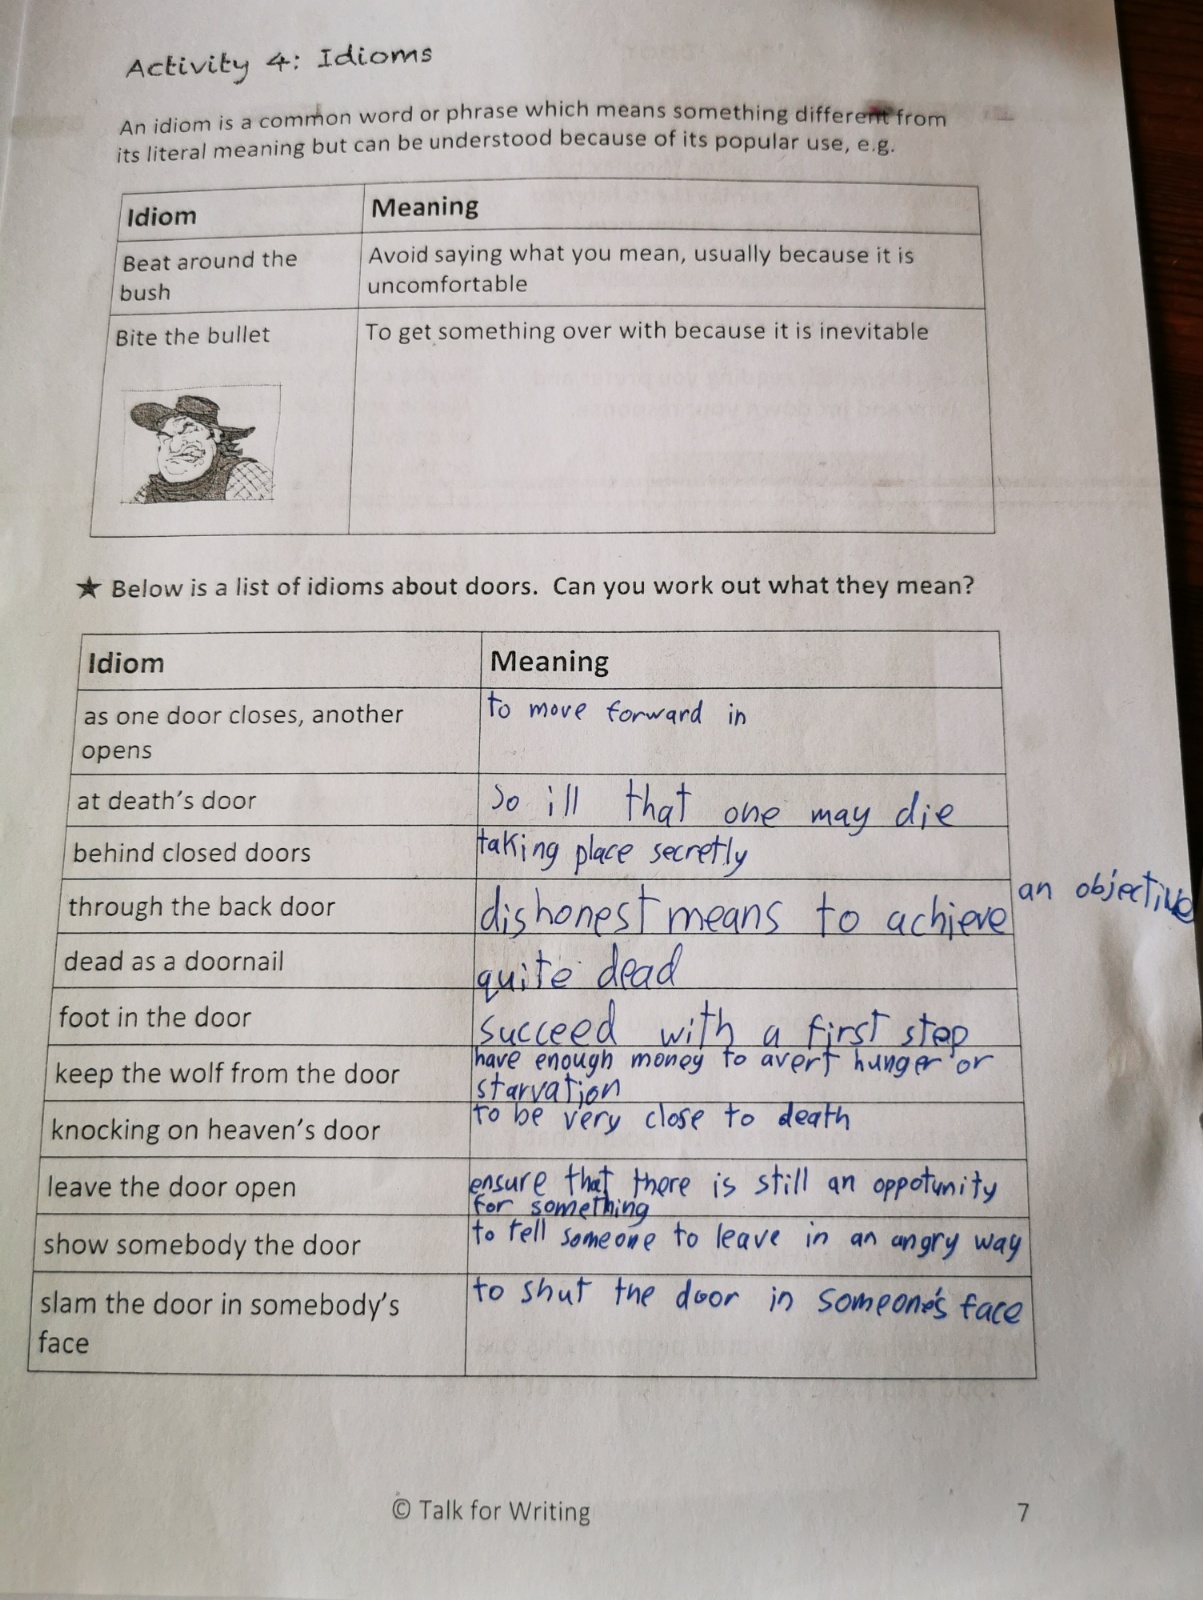 Activity 4: Idioms
An idiom is a common word or phrase which means something different from
its literal meaning but can be understood because of its popular use, e.g.
Idiom
Meaning
Beat around the
bush
Avoid saying what you mean, usually because it is
uncomfortable
Bite the bullet
To get something over with because it is inevitable
★ Below is a list of idioms about doors. Can you work out what they mean?
Idiom
Meaning
as one door closes, another
opens
to move forward in
at death's door
so ill that one may die
behind closed doors
taking place secretly
through the back door
dishonest means to achieve an objective
dead as a doornail
quite dead
foot in the door
succeed with a first step
keep the wolf from the door
have enough money to avert hunger or
starvation
knocking on heaven's door
to be very close to death
leave the door open
ensure that there is still an oppotunity
for something
show somebody the door
to tell someone to leave in an angry way
slam the door in somebody's
face
to shut the door in someone's face
© Talk for Writing
7